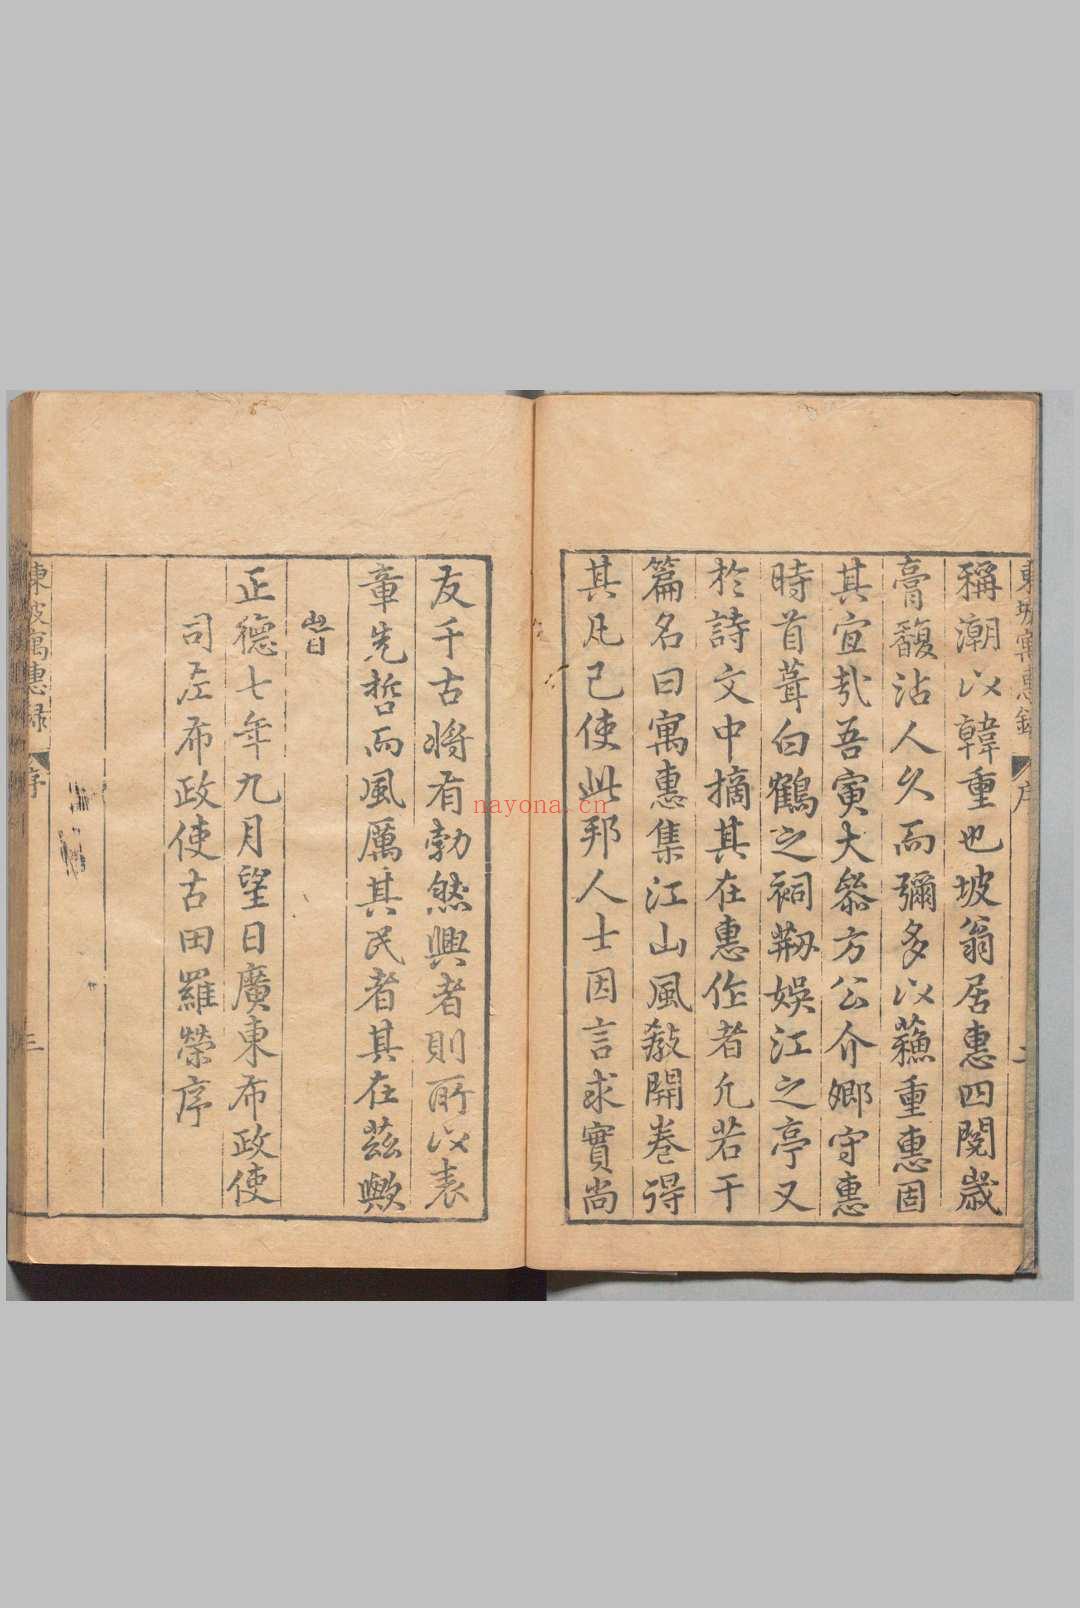 東坡寓惠錄 序 二
稱潮以韓重也坡翁居惠四閱歲
膏馥沾人久而彌多以蘓重惠固
其宜㢤吾寅大叅方公介卿守惠
時首葺白鶴之祠剏娛江之亭又
於詩文中摘其在惠作者凢若干
篇名曰寓惠集江山風敎開卷得
其凡已使此邦人士因言求實尚
友千古將有勃然興者則所以表
章先哲而風厲其民者其在茲歟
旹
正德七年九月望日廣東布政使
司左布政使古田羅榮序
東坡寓惠録 序 三
nayona.cn